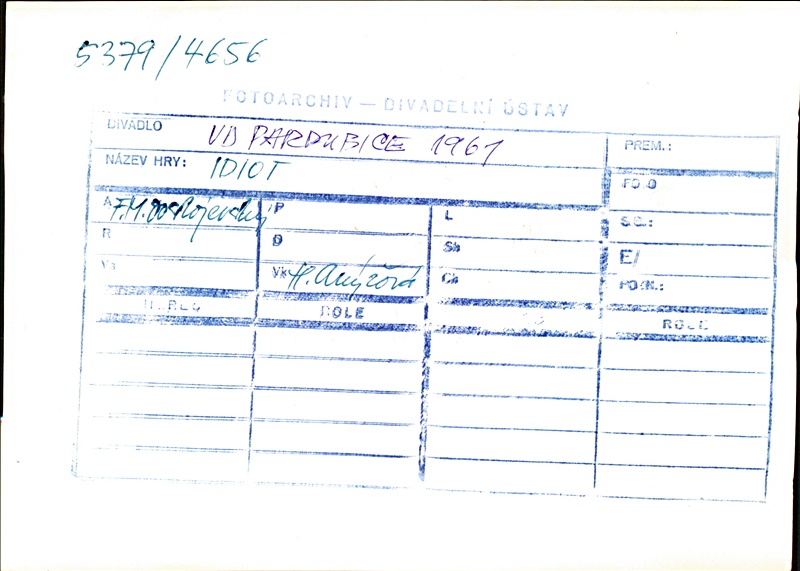 5379/4656
FOTOARCHIV — DIVADELNÍ ÚSTAV
DIVADLO VD PARDUBICE 1961 PREM.:
NÁZEV HRY: IDIOT FOTO
A F.M. Dostojevský P L S.G.:
R D Sb E/
Vs Vk H. Anýžová Ch POZN.:
HEREC ROLE ROLE